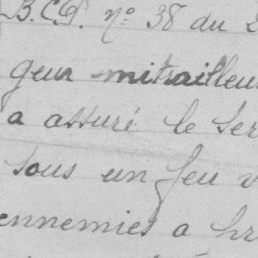 B.C.P. No 38 du
geur mitrailleu
a assuré le ser
sous un feu
ennemies a pr